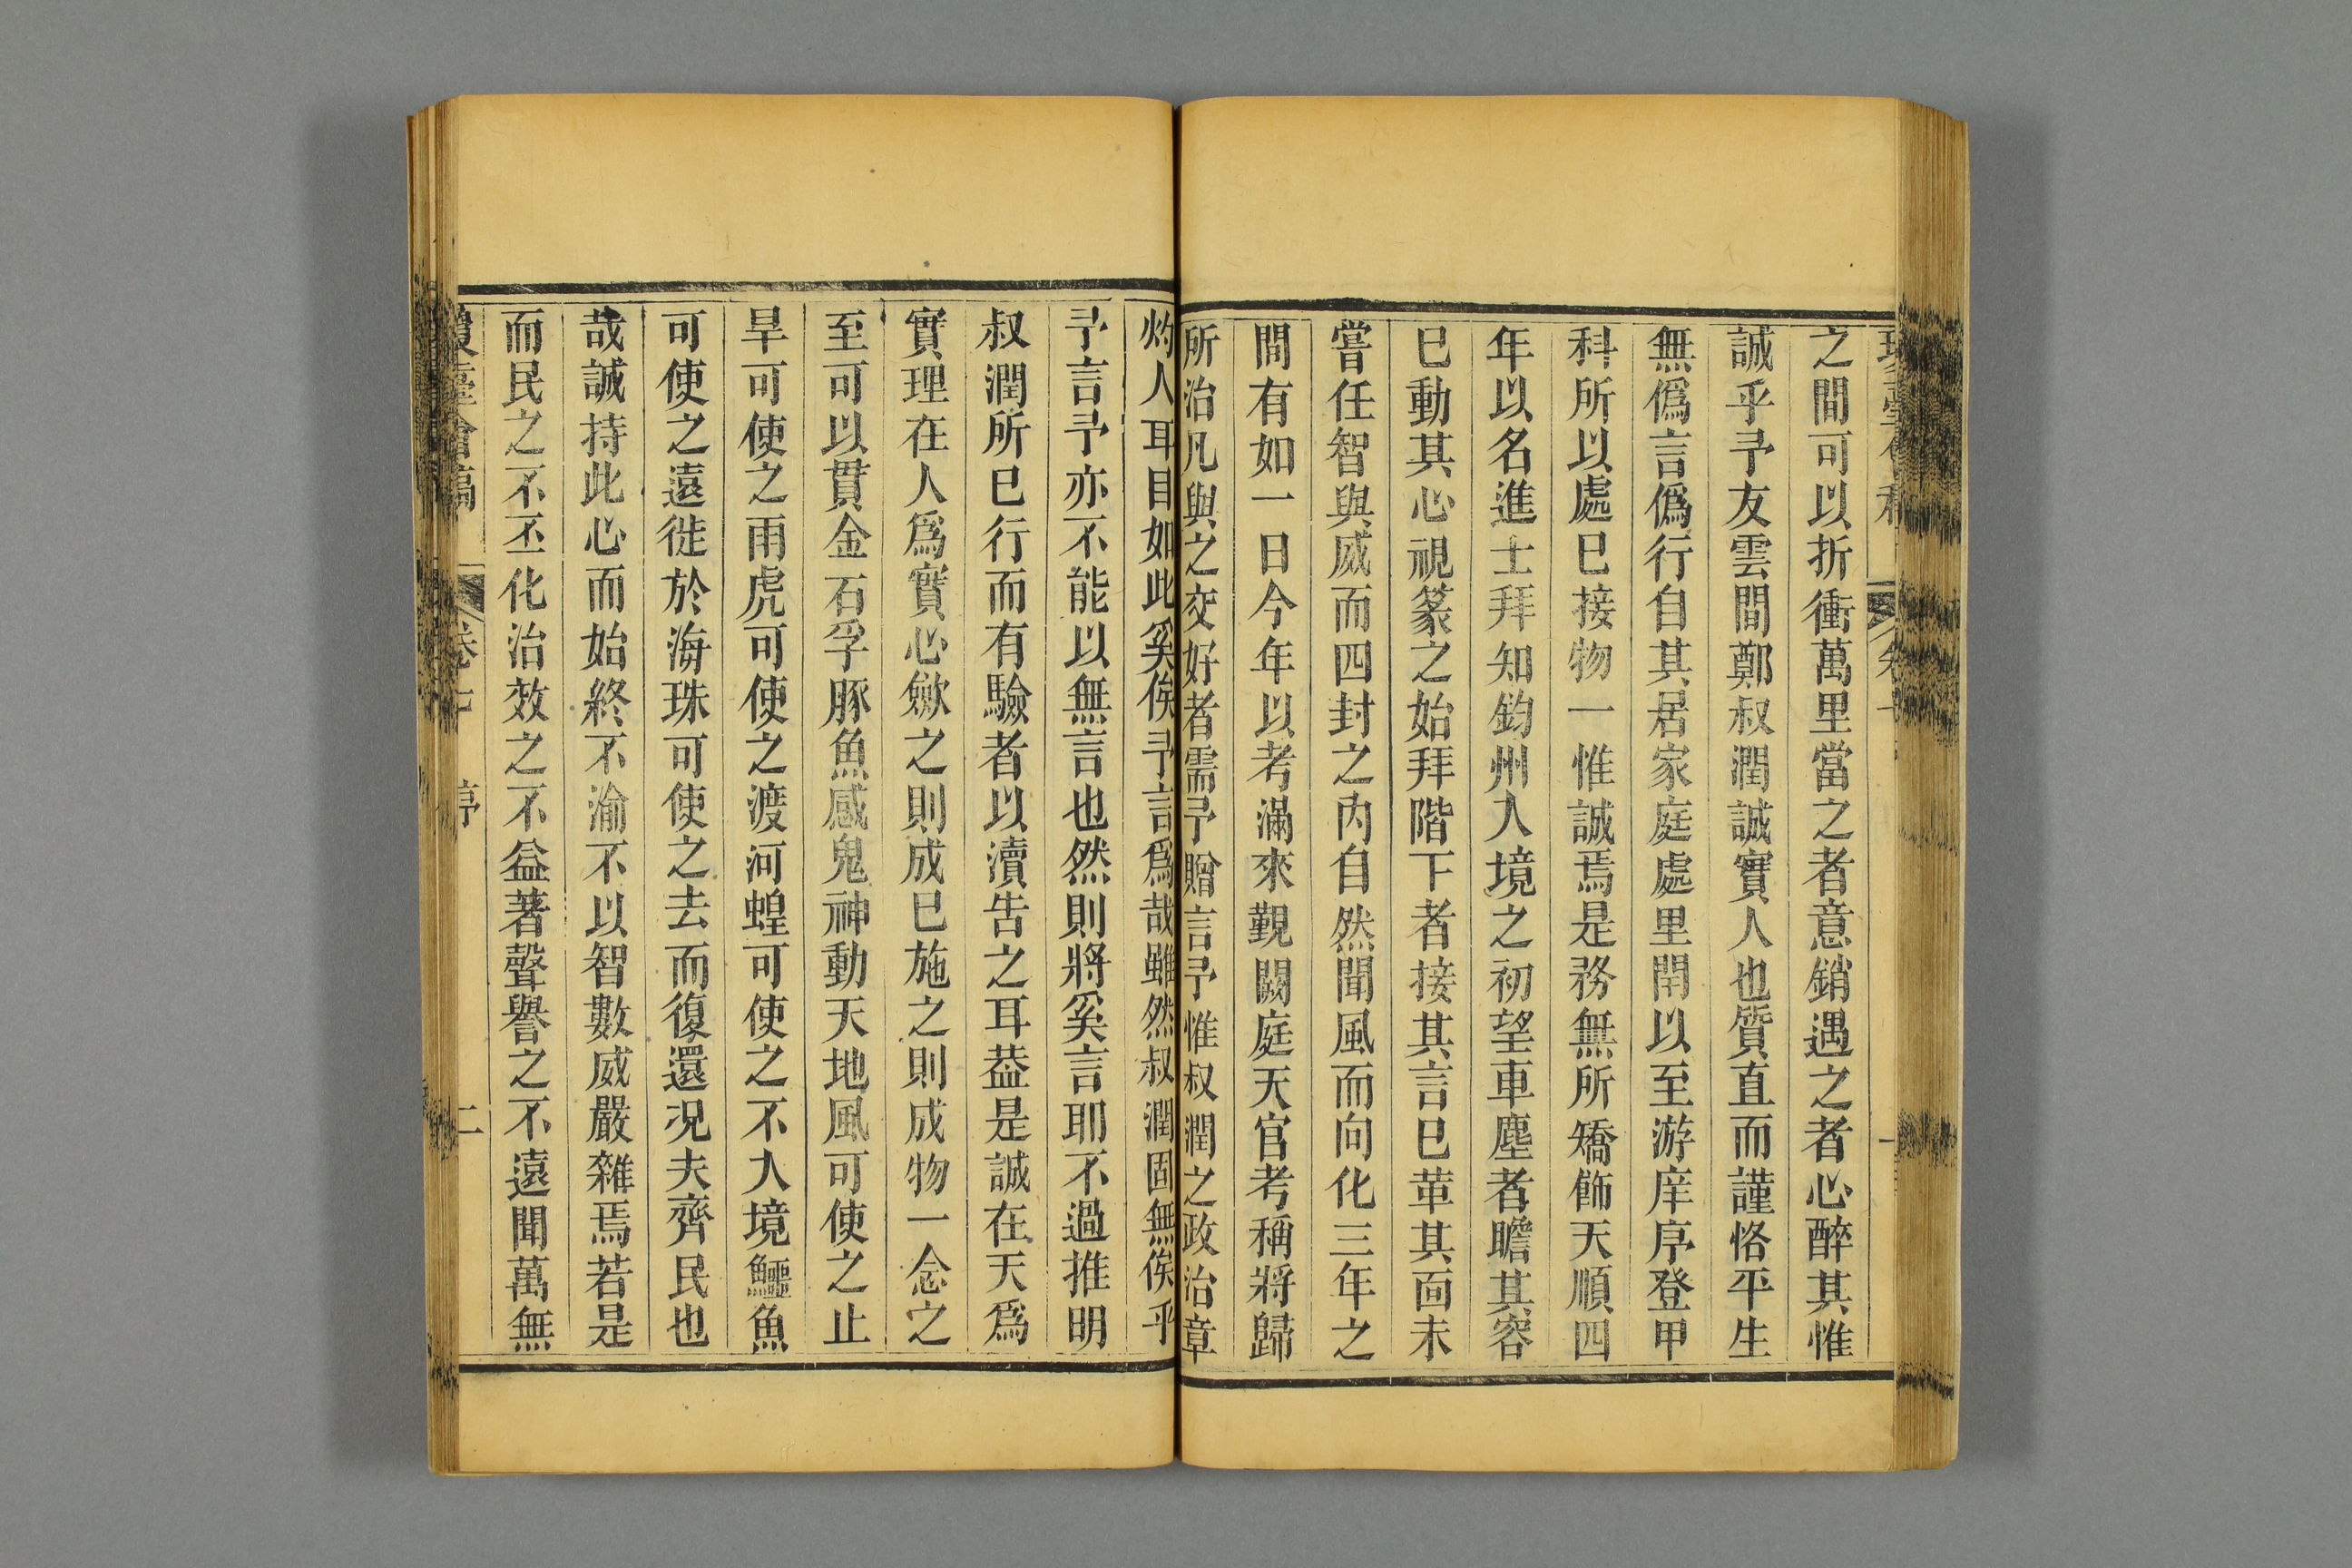 之間可以折衝萬里當之者意銷遇之者心醉其惟
誠乎予友雲間鄭叔潤誠實人也質直而謹恪平生
無僞言僞行自其居家庭處里閈以至游庠序登甲
科所以處已接物一惟誠焉是務無所矯飾天順四
年以名進士拜知鈞州入境之初望車塵者瞻其容
已動其心視篆之始拜階下者接其言已革其面未
嘗任智與威而四封之內自然聞風而向化三年之
間有如一日今年以考滿來覲闕庭天官考稱將歸
所治凡與之交好者需予贈言予惟叔潤之政治章
灼人耳目如此奚俟予言爲哉雖然叔潤固無俟乎
予言予亦不能以無言也然則將奚言耶不過推明
叔潤所已行而有驗者以瀆告之耳葢是誠在天爲
實理在人爲實心斂之則成已施之則成物一念之
至可以貫金石孚豚魚感鬼神動天地風可使之止
旱可使之雨虎可使之渡河蝗可使之不入境鱷魚
可使之遠徙於海珠可使之去而復還况夫齊民也
哉誠持此心而始終不渝不以智數威嚴雜焉若是
而民之不丕化治效之不益著聲譽之不遠聞萬無
卷七
序
二